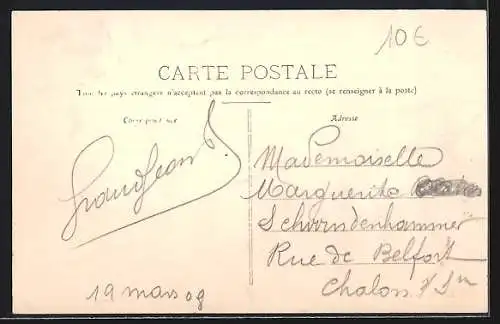 10€
CARTE POSTALE
Tous les pays étrangers n'acceptent pas la correspondance au recto (se renseigner à la poste)
Correspondance
Adresse
Grandjean
19 mars 09
Mademoiselle
Marguerite
Rue de Belfort
Chalon s/ Sne